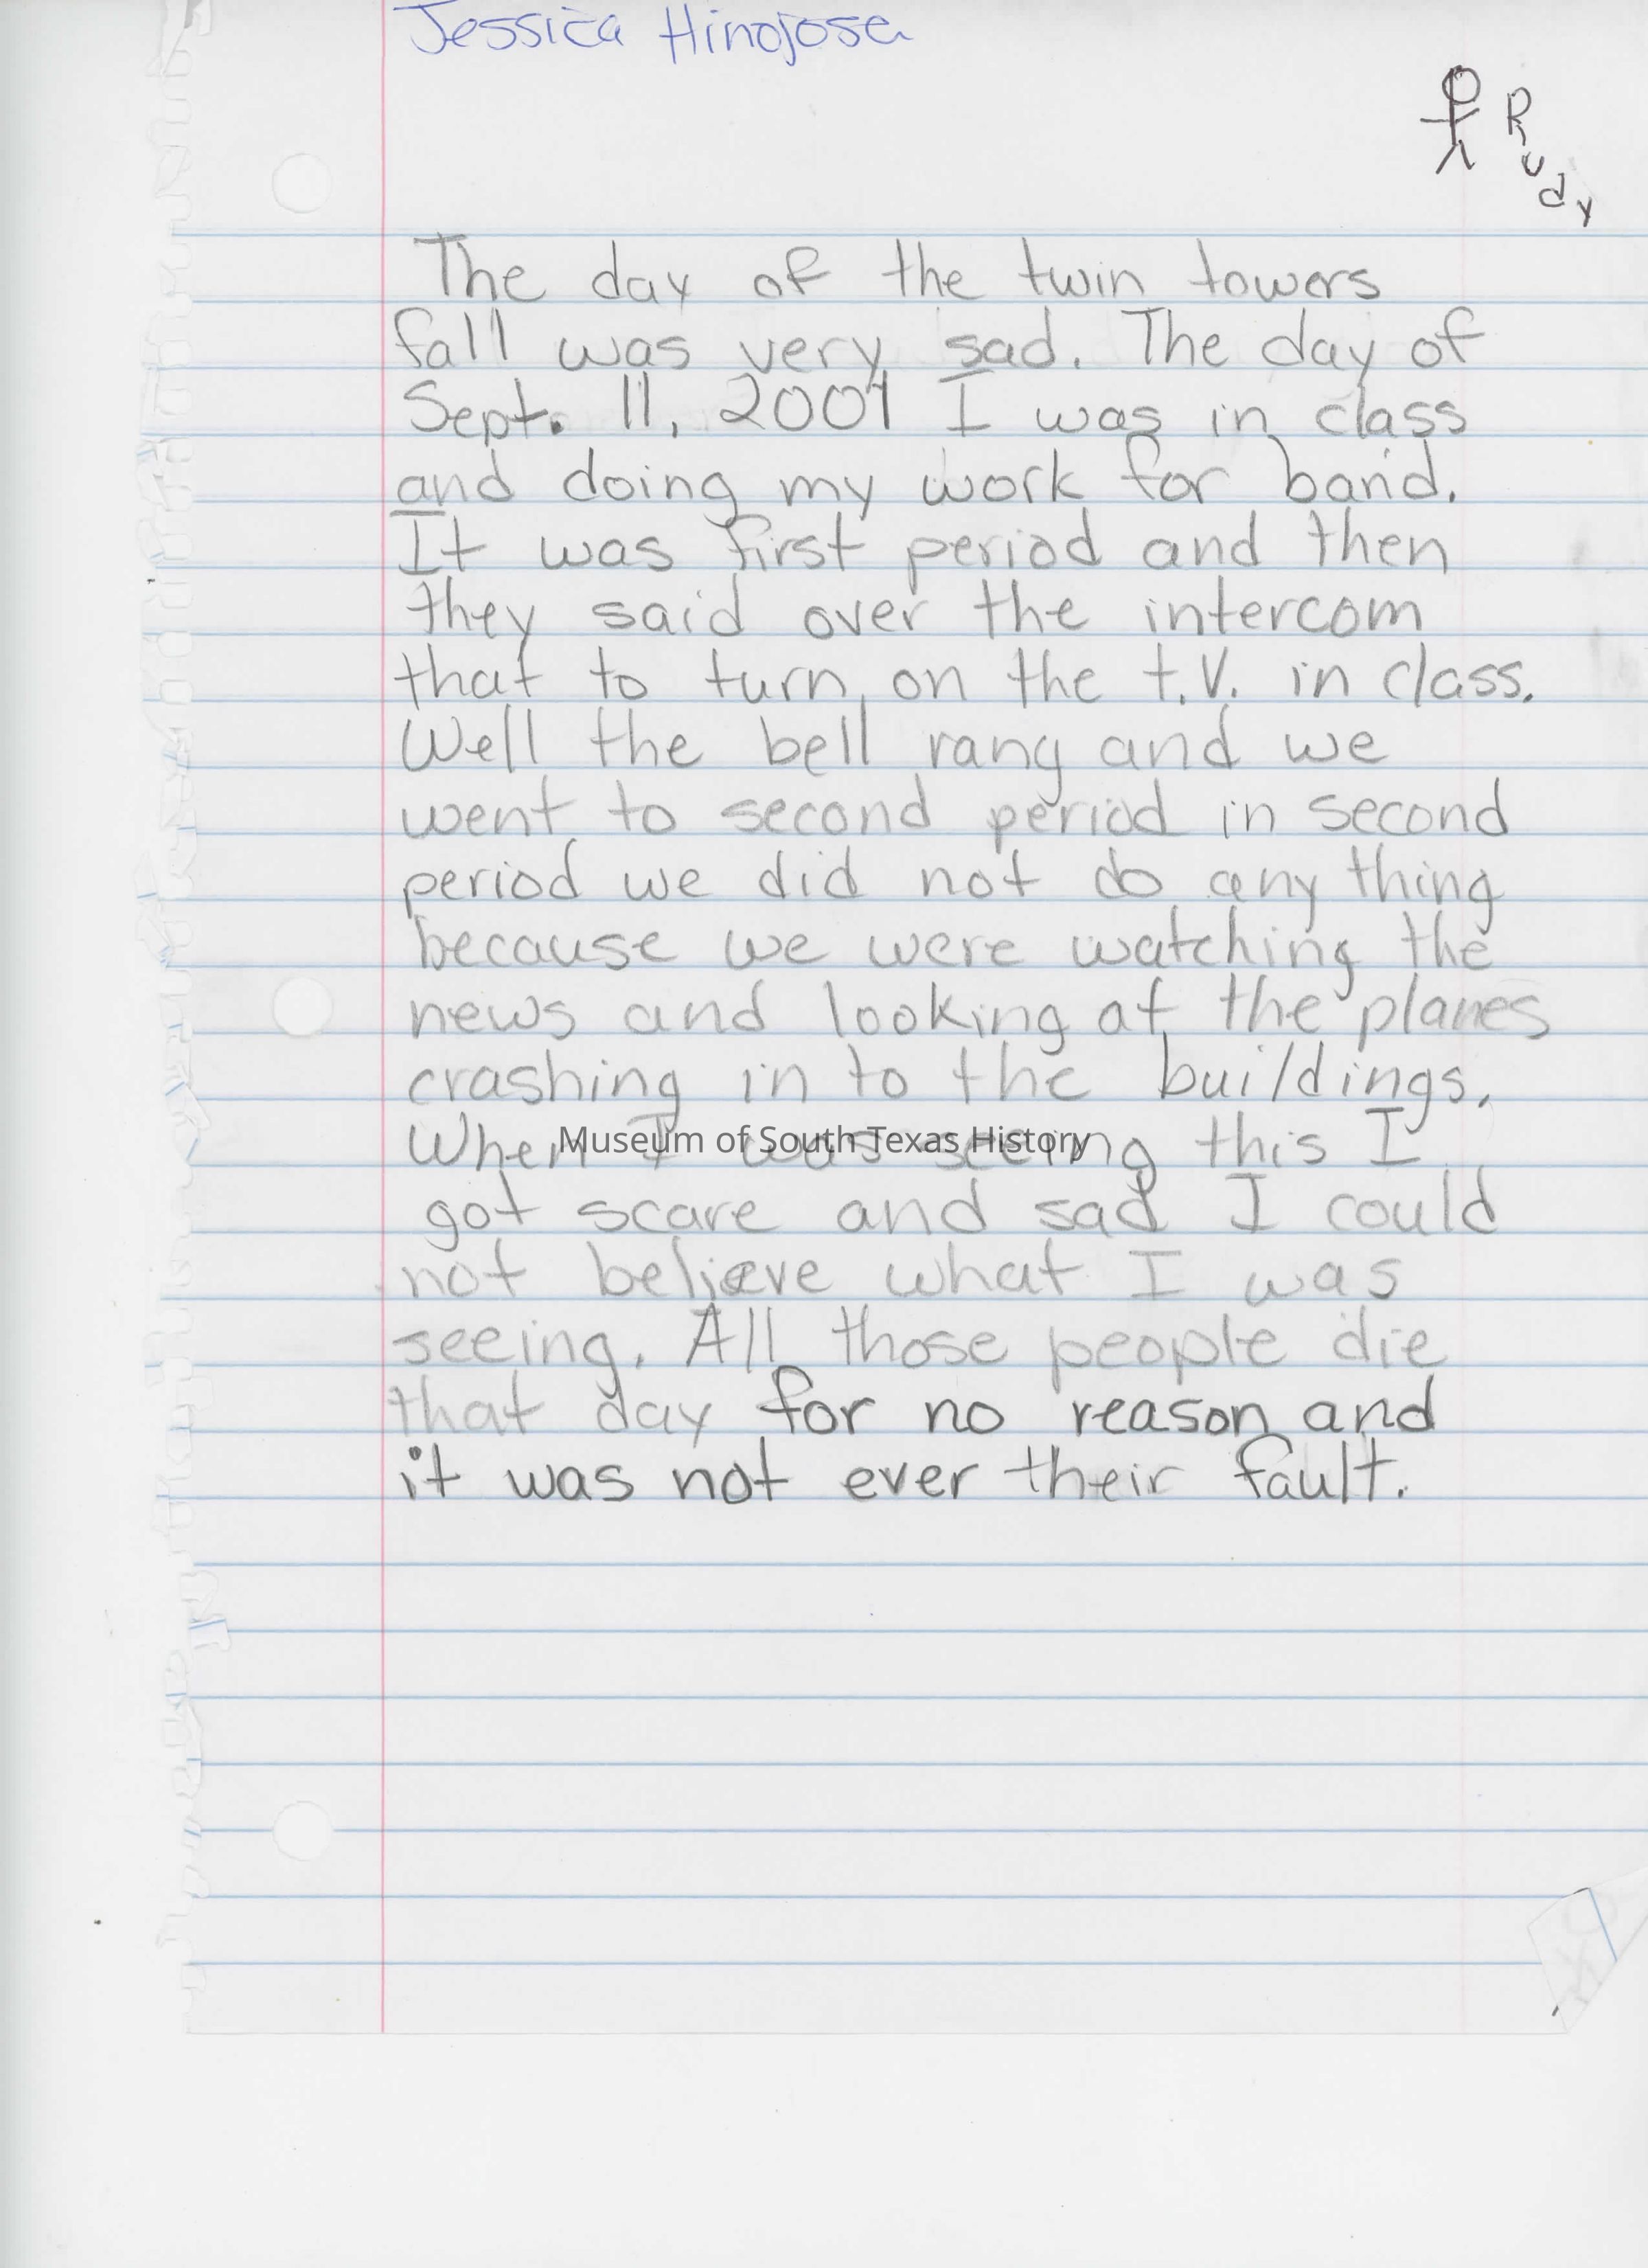 Jessica Hinojosa
Rudy
The day of the twin towers
fall was very sad. The day of
Sept. 11, 2001 I was in class
and doing my work for band.
It was first period and then
they said over the intercom
that to turn on the t.V. in class.
Well the bell rang and we
went to second period in second
period we did not do any thing
because we were watching the
news and looking at the planes
crashing in to the buildings.
When I was seeing this I
Museum of South Texas History
got scare and sad I could
not believe what I was
seeing. All those people die
that day for no reason and
it was not ever their fault.